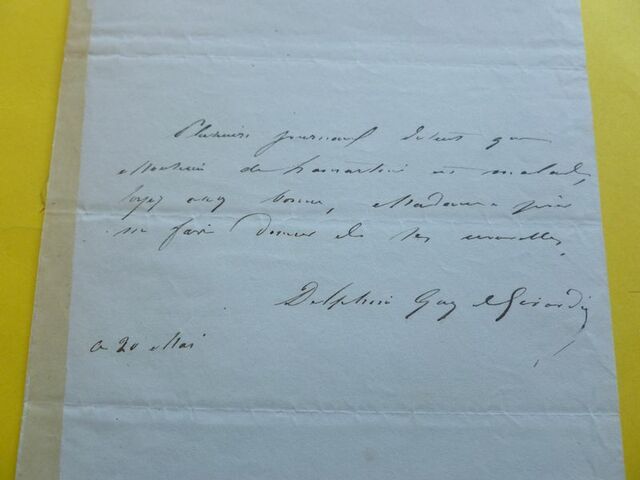 Plusieurs journaux disent que
Monsieur de Lamartine est malade,
soyez assez bonne, Madame, pour
me faire donner de ses nouvelles.
Delphine Gay de Girardin
ce 20 Mai